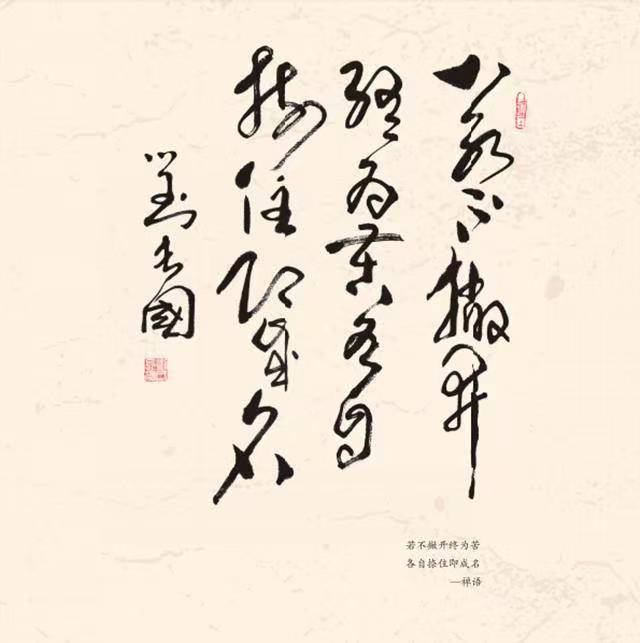 若不撇開
終為苦各自
捺住即成名
若不撇开终为苦
各自捺住即成名
—禅语